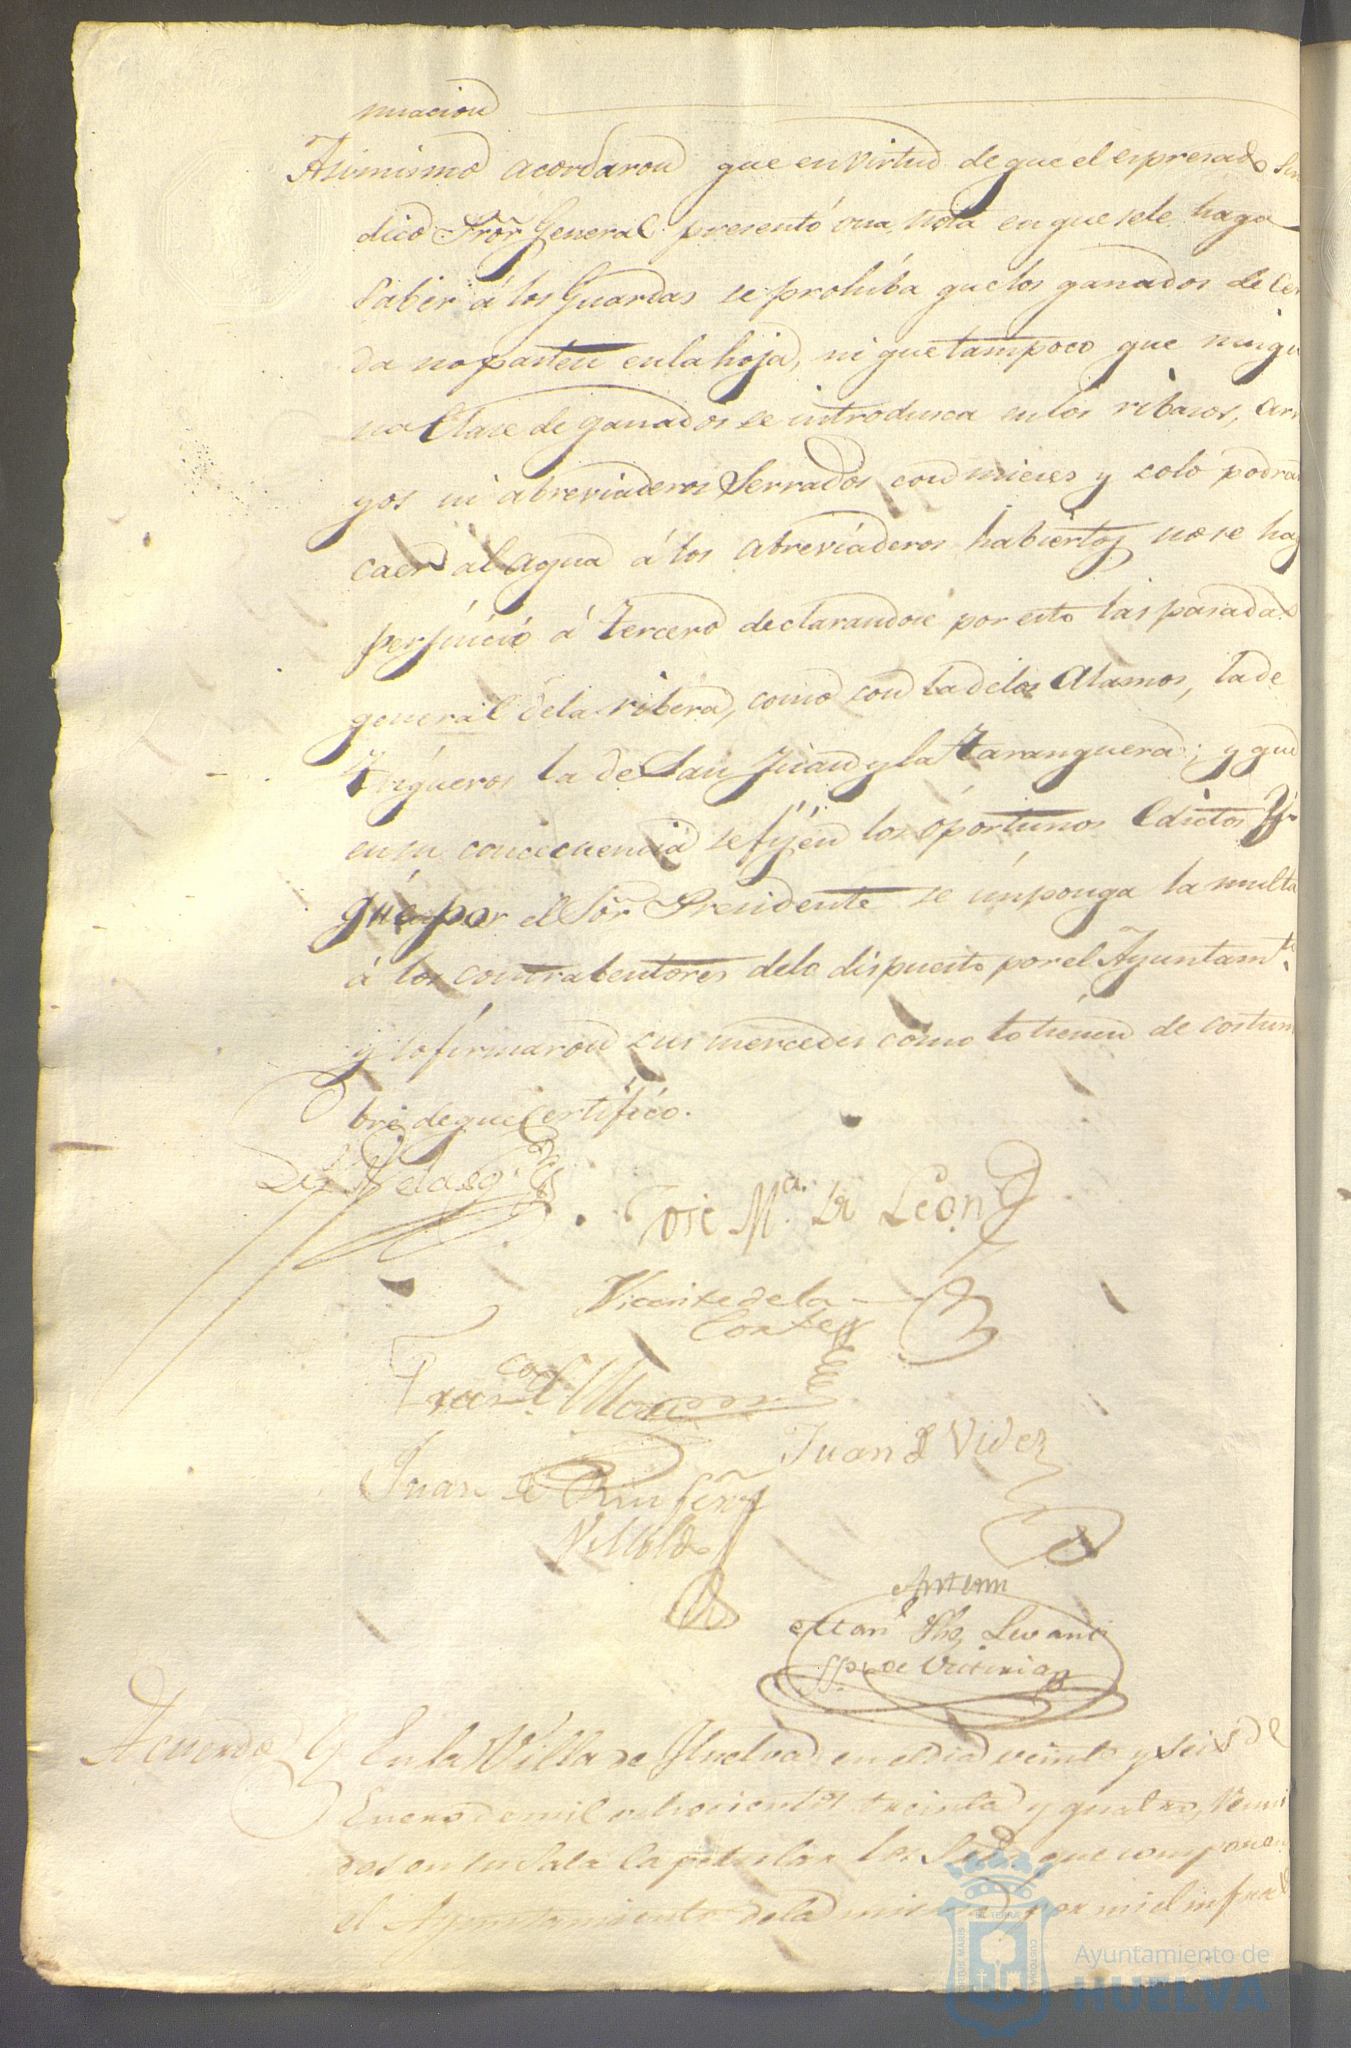 nuacion
Asimismo acordaron que en virtud de que el espresado Sin
dico Prōr General presentó una nota en que se le haga
saber á los Guardas se prohiba que los ganados de Cer
da no pasten en la hoja, ni que tampoco que ningu
na Clase de ganados se introdusca en los ribasos, arr
yos ni abreviaderos Serrados con mieses y solo podran
caer al agua á los abreviaderos habiertos no se hag
perjuició á tercero declarandose por esto las pasadas
general de la ribera, como son la de los Alamos, la de
Trigueros la de San Juan y la Taranguera; y que
en su concecuencia se fijen los oportunos Edictos y
que por el Sōr Presidente se imponga la multa
á los contrabentores de lo dispuesto por el Ayuntamto.
y lo firmaron sus mercedes como lo tienen de costum
bre de que certifico.
José Ma. de León
Vicente de la
Corte
Franco.
Juan Videz
Juan de
Antemi
de
Acuerdo En la Villa de Huelva en el dia veinte y seis de
Enero de mil ochocientos treinta y quatro, Reuni
dos en su Sala Capitular los Sres. que componen
el Ayuntamiento de la misma por mi el infra
Ayuntamiento de
HUELVA